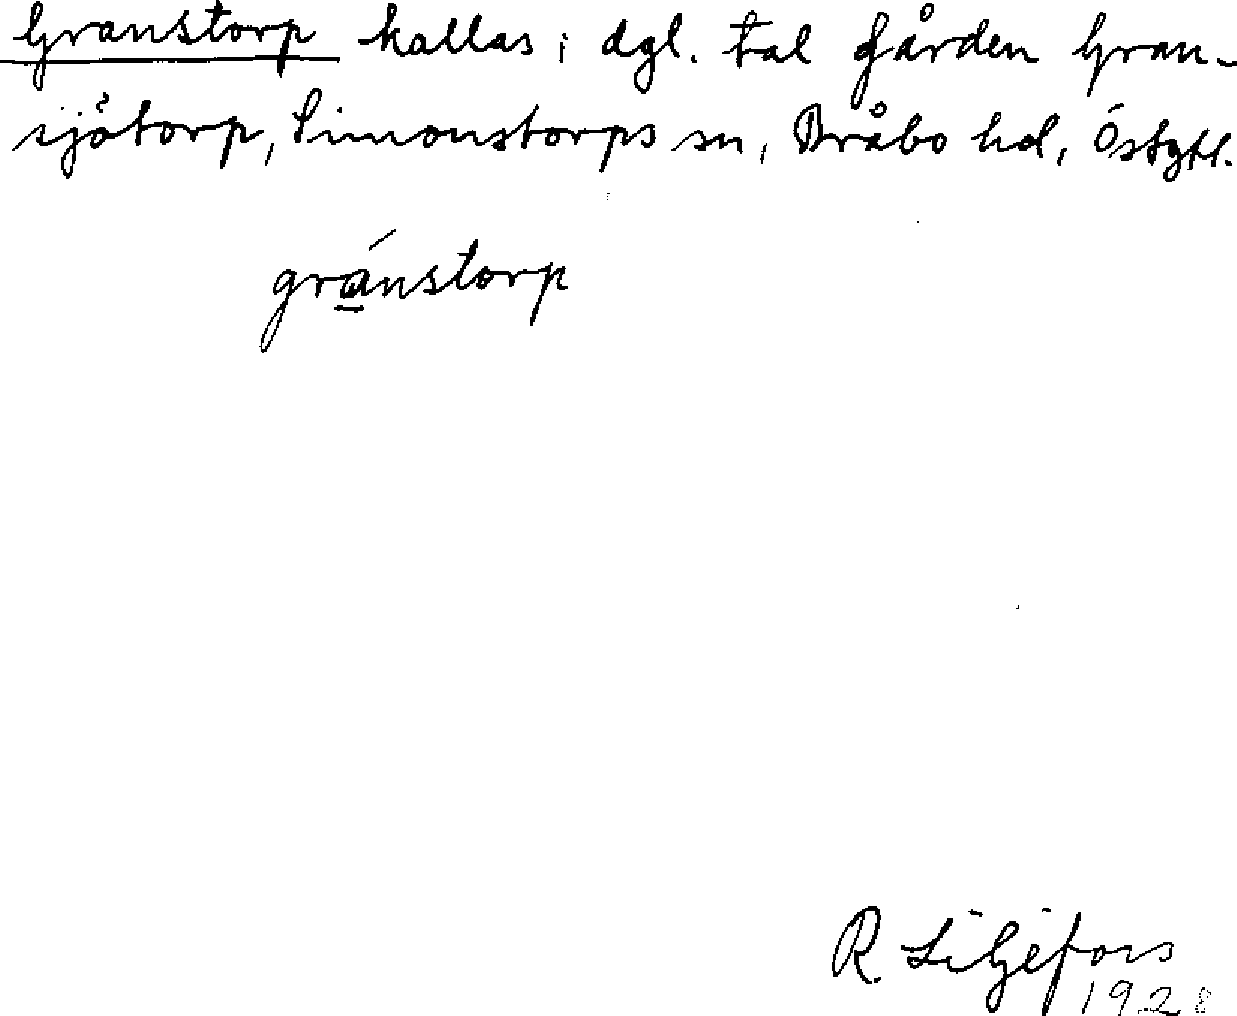 Granstorp kallas i dgl. tal gården Gran-
sjötorp, Simonstorps sn, Bråbo hd, Östgtl.
gránstorp
R. Liljefors
1928